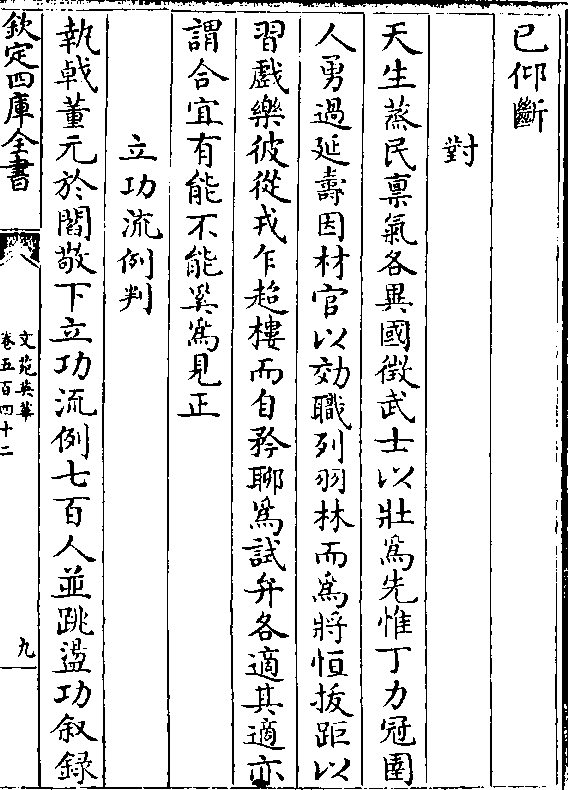 已仰斷
對
天生蒸民禀氣各異國徵武士以壯爲先惟丁力冠圉
人勇過延壽因材官以効職列羽林而爲將恒拔距以
習戲樂彼從戎乍超樓而自矜聊爲試弁各適其適亦
謂合宜有能不能奚爲見正
立功流例判
執戟董元於閻敬下立功流例七百人並跳盪功叙録
欽定四庫全書
文苑英華
卷五百四十二
九